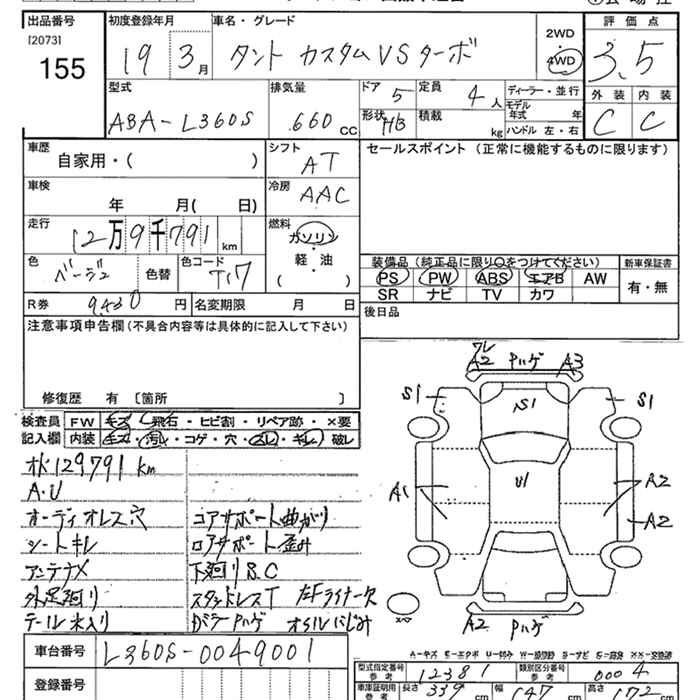 出品番号 初度登録年月 車名・グレード 評価点
[2073]
155 19 3月 タント カスタムVSターボ 2WD 4WD 3.5
型式 排気量 ドア 5 定員 4人 ディーラー・並行 外装 内装
ABA-L360S 660 CC 形状 HB 積載 kg モデル年式 年 C C
ハンドル 左・右
車歴 シフト セールスポイント (正常に機能するものに限ります)
自家用・( ) AT
車検 冷房
年 月( 日) AAC
走行 燃料
12万9千791 km ガソリン
軽・油
( )
色 ベージュ 色替 色コード T17
装備品 (純正品に限り〇をつけてください) 新車保証書
PS PW ABS エアB AW 有・無
SR ナビ TV カワ
R券 9430 円 名変期限 月 日 後日品
注意事項申告欄(不具合内容等は具体的に記入して下さい)
修復歴 有 [箇所 ]
検査員 FW キズ・飛石・ヒビ割・リペア跡・×要
記入欄 内装 キズ・汚レ・コゲ・穴・スレ・キレ・破レ
129791 km
A.U
オーディオレス穴 コアサポート曲がり
シートキレ ロアサポート歪み
アンテナ× 下廻りS.C
外足廻り スタッドレスT 左Fライナー欠
テール水入り ガラーハゲ オイルにじみ
A2 ハゲ A3
S1 S1 S1
U1
A1 A2
A2
A2 ハゲ
車台番号 L360S-0049001
登録番号
型式指定番号 参考 12381 類別区分番号 参考 0004
車庫証明用 参考 長さ 339 cm 幅 147 cm 高さ 172 cm